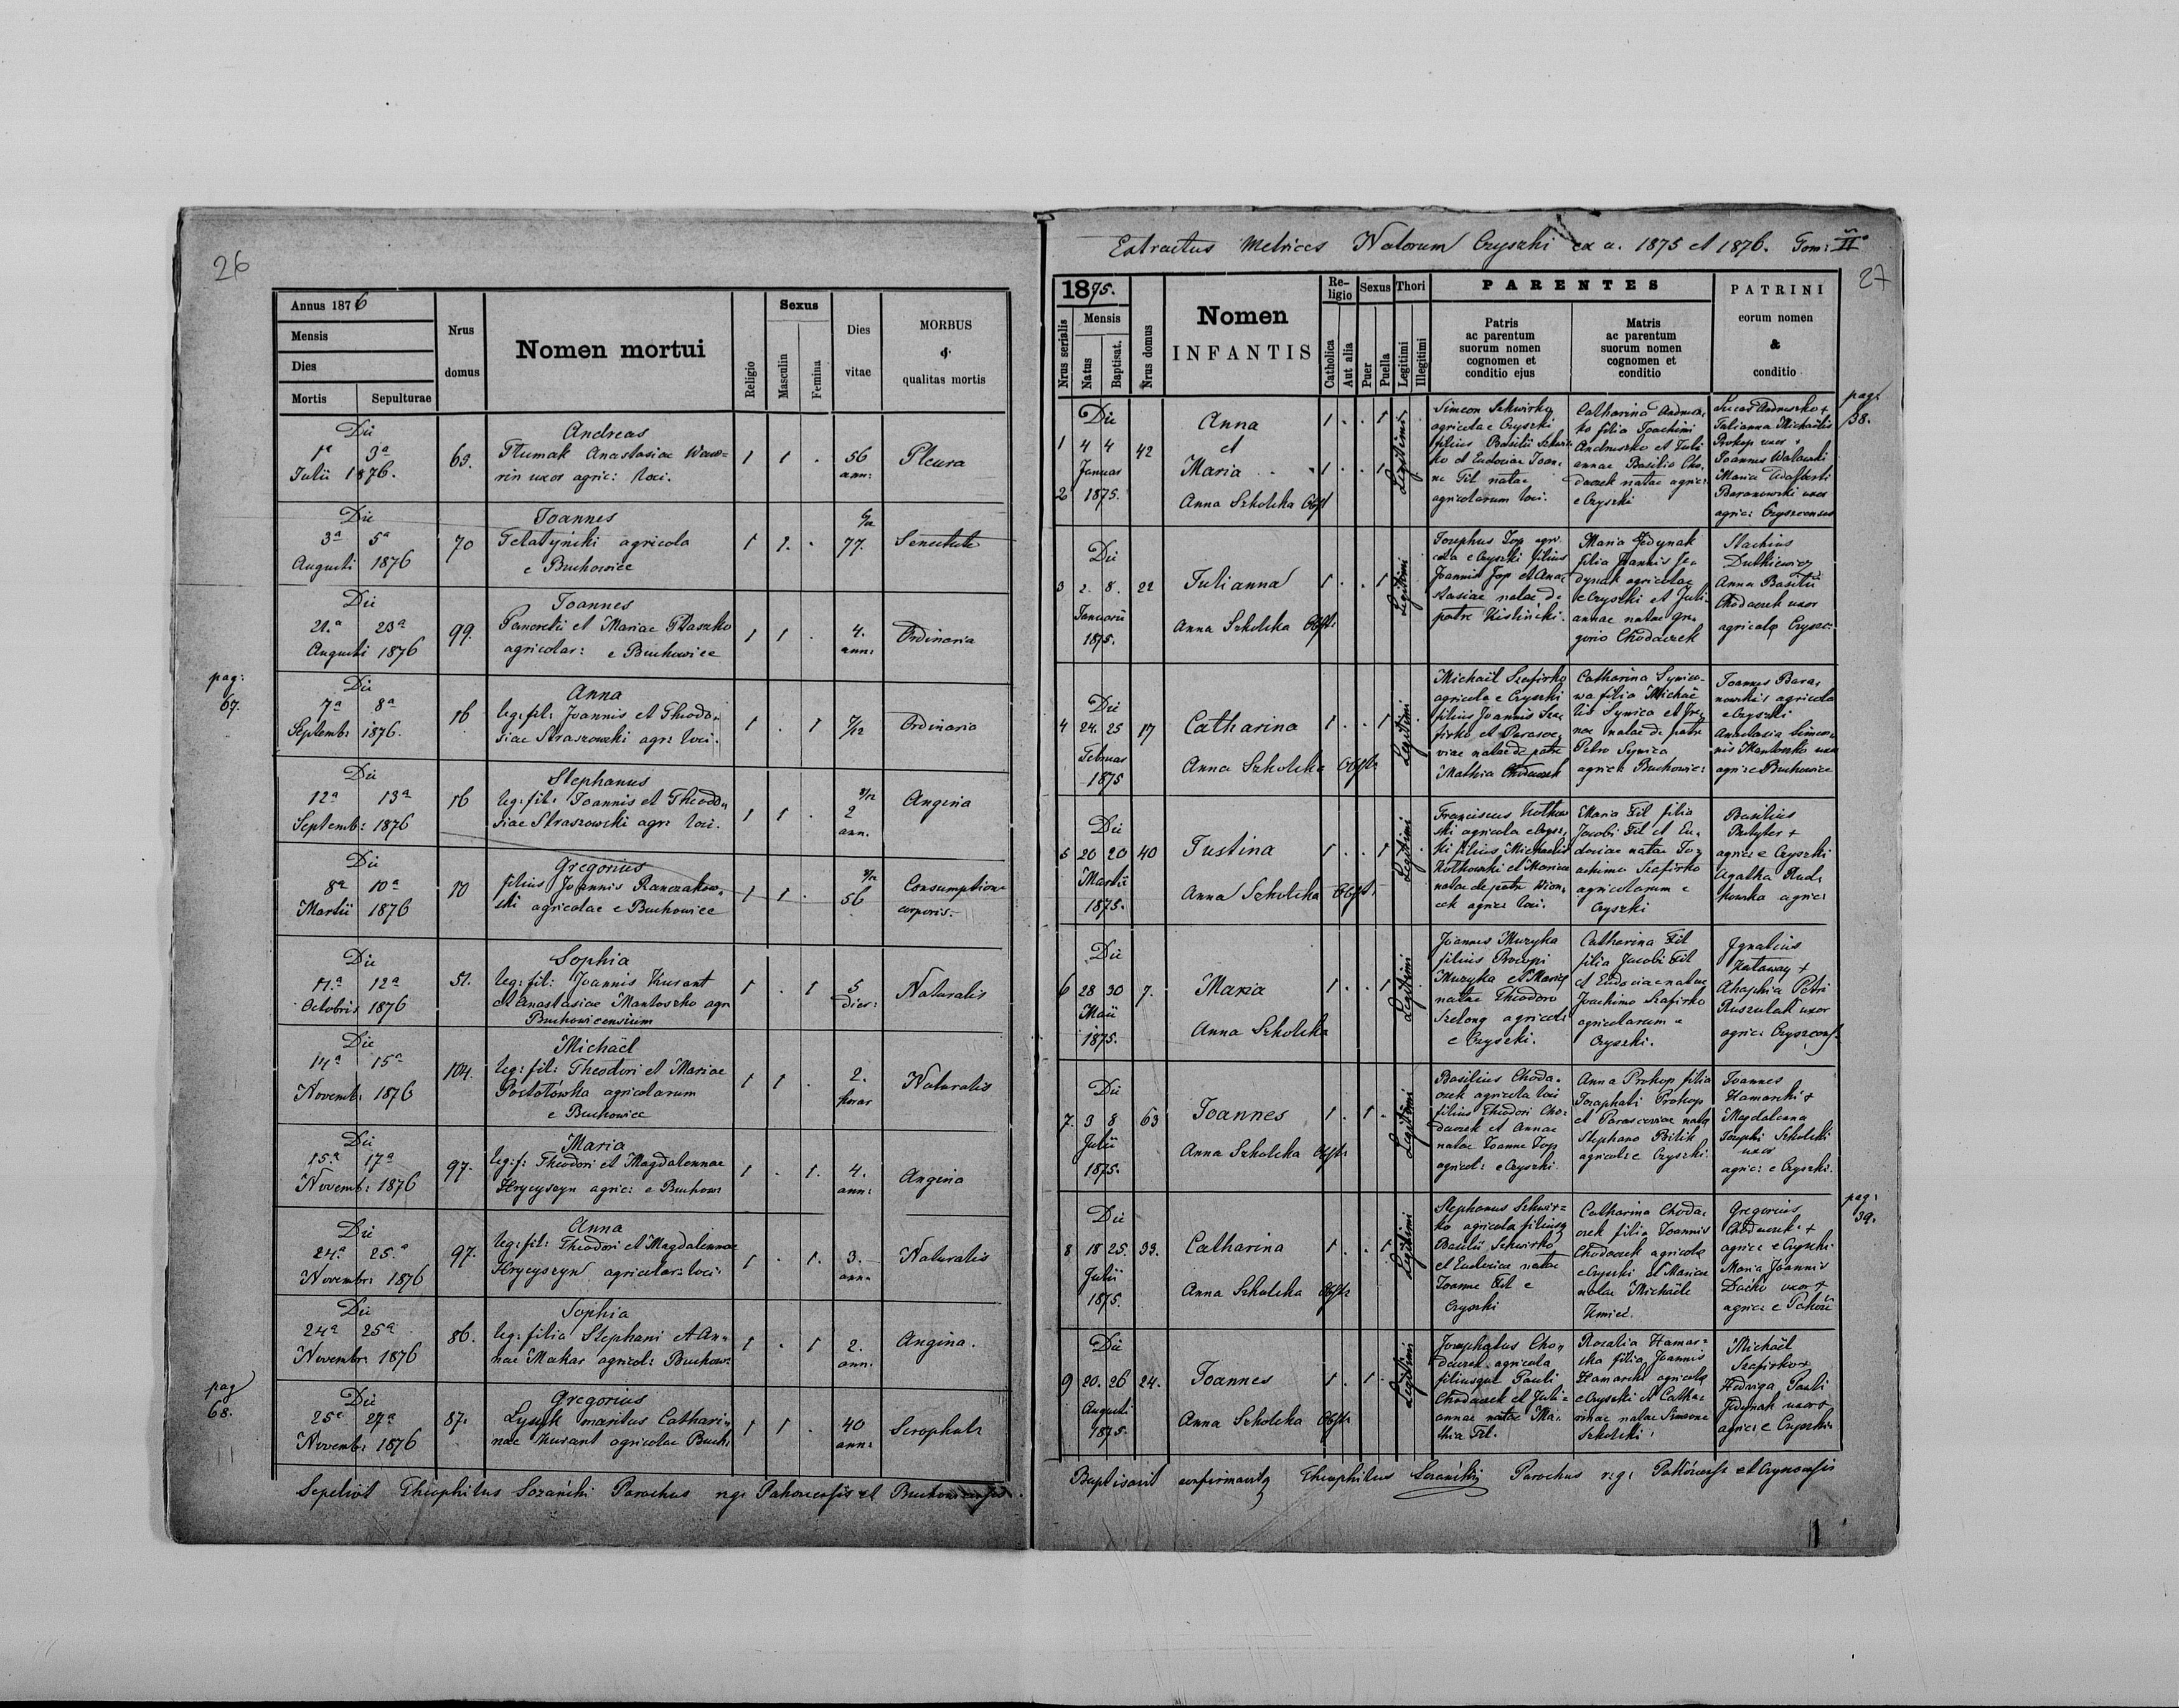 26
Annus 1876
Mensis
Dies
Mortis Sepulturae
Nrus domus
Nomen mortui
Religio
Sexus
Masculin
Femina
Dies vitae
MORBUS
&
qualitas mortis
Die
1ª 3ª
Julii 1876.
69.
Andreas
Tłumak Anastasiae Waw=
rin uxor agric: loci.
1 1 .
56
ann:
Pleura
Die
3ª 5ª
Augusti 1876
70
Joannes
Telatyński agricola
e Buchowice
1 1. .
6/12
77.
Senectute
Die
21.ª 23ª
Augusti 1876
99.
Joannes
et Mariae Ptaszko
agricolar: e Buchowice
1 1 .
4.
ann:
Ordinaria
pag:
67.
Die
7ª 8ª
Septemb: 1876.
16
Anna
leg: fil: Joannis et Theodo„
siae Straszowski agr: loci.
1 . 1
7/12
Ordinaria
Die
12ª 13ª
Septemb: 1876
16
Stephanus
leg: fil: Joannis et Theodo„
siae Straszowski agr: loci.
1 1 .
8/12
2
ann.
Angina
Die
8ª 10ª
Martii 1876
10
Gregorius
filius Joannis Ranczakow„
ski agricolae e Buchowice
1 1 .
56
Consumptione
corporis.
Die
11.ª 12ª
Octobris 1876
51.
Sophia
leg: fil: Joannis Kurant
et Anastasiae Mantoszko agr
Buchowicensium
1 . 1
5
dier:
Naturalis
Die
14ª 15ª
Novemb: 1876
104.
Michaël
leg: fil: Theodori et Mariae
agricolarum
e Buchowice
1 1 .
2.
horar
Naturalis
Die
15ª 17ª
Novemb: 1876
97.
Maria
leg: f: Theodori et Magdalennae
Hrycyszyn agric: e Buchow:
1 . 1.
4.
ann:
Angina
Die
24ª 25.ª
Novembr: 1876
97.
Anna
leg: fil: Theodori et Magdalennae
Hrycyszyn agricolar: loci.
1 . 1.
3.
ann.
Naturalis
Die
24ª 25ª
Novembr: 1876
86.
Sophia
leg: filia Stephani et An„
nae Makar agricol: Buchow:
1 . 1
2.
ann.
Angina.
pag
68.
Die
25ª 27ª
Novemb: 1876
87.
Gregorius
Łysyk maritus Cathari„
nae Kurant agricolae Buch:
1 1 .
40
ann:
Scrophulr
Sepelivit Theophilus Sozański Parochus r: g: Pakoncensis et Buchowicensis.
Extractus Metrices Natorum Czyszki ex a. 1875 et 1876. Tom: II°
27
1875.
Nrus serialis
Mensis
Natus
Baptisat.
Nrus domus
Nomen
INFANTIS
Religio
Catholica
Aut alia
Sexus
Puer
Puella
Thori
Legitimi
Illegitimi
PARENTES
Patris
ac parentum
suorum nomen
cognomen et
conditio ejus
Matris
ac parentum
suorum nomen
cognomen et
conditio
PATRINI
eorum nomen
&
conditio
pag:
38.
Die
1 4 4
Januar
2 1875.
42
Anna
et
Maria
Anna Szkolska Obst
1 . . 1
1 . . 1
Legitimi
Simeon Szkwirko
agricola e Czyszki
filius Basilii Szkwir
ko et Eudociae Joan„
ne Fil natae
agricolarum loci.
Catharina Andrusz„
ko filia Joachimi
Andruszko et Juli
annae Basilio Cho„
daczek natae agric:
e Czyszki
Lucas Andruszko +
Julianna Michaëlis
Prokop uxor +
Joannes Walawski
Maria Adalberti
Baranowski uxor
agric: Czyszcensis
Die
3 2. 8.
Januarii
1875.
22
Julianna
Anna Szkolska Obst:
1 . . 1
Legitimi
Josephus Jop agri
cola e Czyszki filius
Joannis Jop et Ana„
stasiae natae de
patre Kisliński.
Maria Jedynak
filia Joannis Je„
dynak agricolae
e Czyszki et Juli„
annae natae Gre
gorio Chodaczek
Stachius
Dutkiewicz
Anna Basilii
Chodaczek uxor
agricola Czyszc:
Die
4 24. 25
Februar
1875
17
Catharina
Anna Szkolska Obst:
1 . . 1
Legitimi
Michaël Szafirko
agricola e Czyszki
filius Joannis Sza„
firko et Parasce„
viae natae de patre
Mathia Chodaczek
Catharina Synico„
wa filia Michaë
lis Synica et Ire„
nae natae de patre
Petro Synica
agricol: Buchowic:
Joannes Bara„
nowski agricola
e Czyszki
Anastasia Simeo„
nis Mantoszko uxor
agric: e Buchowice
Die
5 20 20
Martii
1875.
40
Justina
Anna Szkolska Obst:
1 . . 1
Legitimi
Franciscus Kotkow
ski agricola e Czysz„
ki filius Michaelis
Kotkowski et Mariae
natae de patre Wion„
cek agric: loci.
Maria Fil filia
Jacobi Fil et Eu„
dociae natae Jo„
achimo Szafirko
agricolarum e
Czyszki
Basilius
+
agric: e Czyszki
Agatha Rud„
kowska agric:
Die
6 28 30
Maii
1875.
7.
Maria
Anna Szkolska
1 . . 1
Legitimi
Joannes Muzyka
filius Procopi
Muzyka et Mariae
natae Theodoro
Szelong agricol:
e Czyszki.
Catharina Fil
filia Jacobi Fil
et Eudociae natae
Joachimo Szafirko
agricolarum e
Czyszki.
Ignatius
+
Ahaphia Petri
Ruszczak uxor
agric: Czyszcens:
Die
7. 3 8
Julii
1875.
63
Joannes
Anna Szkolska Obst:
1 . 1 .
Legitimi
Basilius Choda„
czek agricola loci
filius Theodori Cho„
daczek et Annae
natae Joanne Jop
agricol: e Czyszki.
Anna Prokop filia
Josaphati Prokop
et Parasceviae natae
Stephano Bilik
agricol: e Czyszki.
Joannes
Hamarski +
Magdalenna
Josephi Szkolski
uxor
agric: e Czyszki.
pag:
39.
Die
8 18 25.
Julii
1875.
33.
Catharina
Anna Szkolska Obst:
1 . . 1
Legitimi
Stephanus Szkwir=
ko agricola filiusq
Basilii Szkwirko
et Eudociae natae
Joanne Fil e
Czyszki
Catharina Choda„
czek filia Joannis
Chodaczek agricola
e Czyszki et Mariae
natae Michaële
Kmieć.
Gregorius
Chodaczek +
agric: e Czyszki
Maria Joannis
Dańko uxor +
agric: e Pakość
Die
9 20. 26
Augusti
1875.
24.
Joannes
Anna Szkolska Obst:
1 . 1 .
Legitimi
Josaphatus Cho„
daczek agricola
filiusque Pauli
Chodaczek et Juli=
annae natae Ma„
thia Fil.
Rozalia Hamar=
ska filia Joannis
Hamarski agricola
e Czyszki et Catha„
rinae natae Simeone
Szkolski.
Michaël
Szafirko +
Hedviga Pauli
Jedynak uxor
agric: e Czyszki.
Baptisavit confirmavitq Theophilus Sozański Parochus r: g: Pakoncensis et Czyszcensis